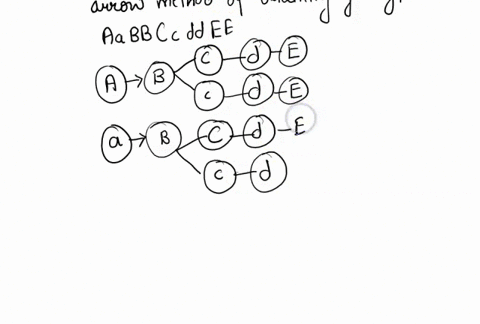 arrow method of
AaBBCcddEE
A B C d E
c d E
a B C d E
c d